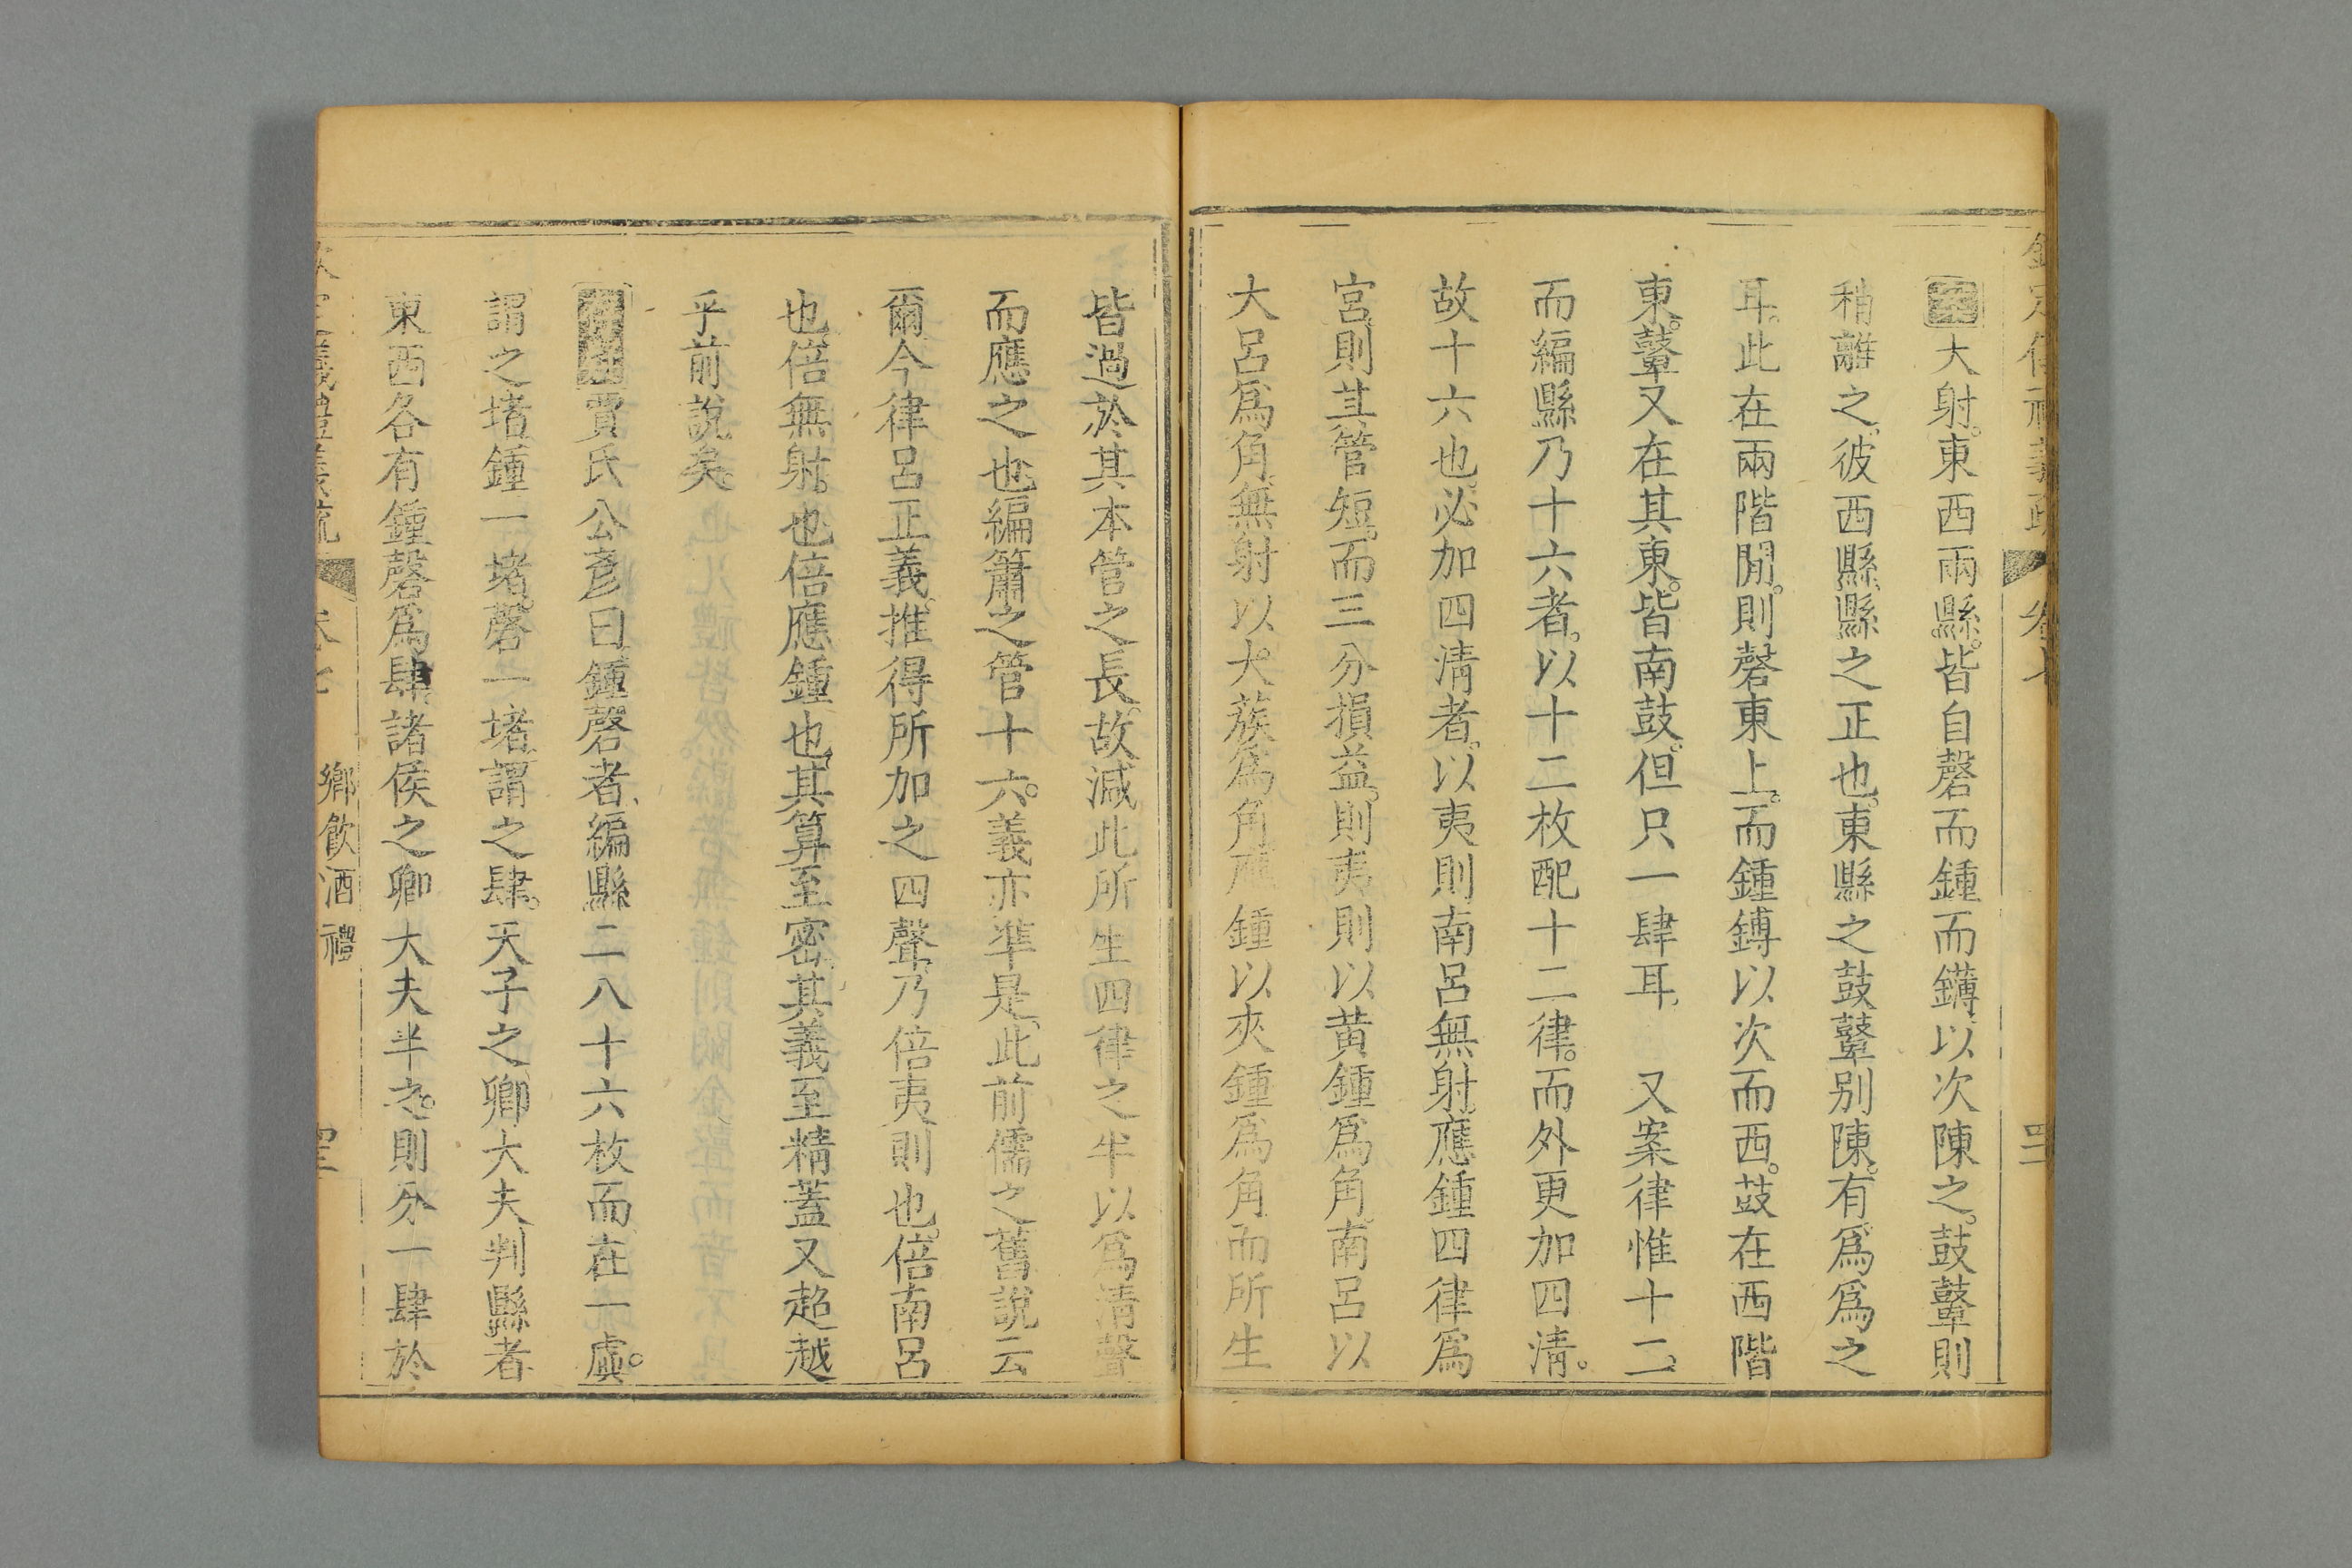 案大射。東西兩縣。皆自磬而鍾而鑮。以次陳之。鼓鼙則
稍離之。彼西縣。縣之正也。東縣之鼓鼙别陳。有爲爲之
耳。此在兩階閒。則磬東上。而鍾鎛以次而西。鼓在西階
東。鼙又在其東。皆南鼓。但只一肆耳。 又案律惟十二。
而編縣乃十六者。以十二枚配十二律。而外更加四淸。
故十六也。必加四淸者。以夷則南呂無射。應鍾四律爲
宮。則其管短。而三分損益。則夷則以黄鍾爲角。南呂以
大呂爲角。無射以大蔟爲角。應鍾以夾鍾爲角。而所生
皆過於其本管之長。故減此所生四律之半以爲淸聲
而應之也。編簫之管十六。義亦準是。此前儒之舊說云
爾。今律呂正義。推得所加之四聲。乃倍夷則也。倍南呂
也。倍無射。也倍應鍾也。其算至密。其義至精。蓋又超越
乎前說矣。
賈氏公彥曰。鍾磬者。編縣二八十六枚而在一虡。
謂之堵。鍾一堵。磬一堵。謂之肆。天子之卿大夫判縣者
東西各有鍾磬爲肆。諸侯之卿大夫半之。則分一肆於
義禮義疏 卷七 鄉飮酒禮